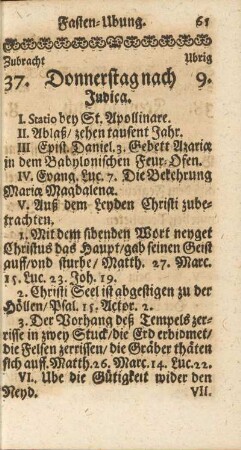 Fasten-Ubung. 61
Zubracht Ubrig
37. Donnerstag nach 9.
Judica.
I. Statio bey St. Apollinare.
II. Ablaß / zehen tausent Jahr.
III Epist. Daniel. 3. Gebett Azariæ
in dem Babylonischen Feur-Ofen.
IV. Evang. Luc. 7. Die Bekehrung
Mariæ Magdalenæ.
V. Auß dem Leyden Christi zube-
trachten.
1. Mit dem sibenden Wort neyget
Christus das Haupt / gab seinen Geist
auff / vnd sturbe / Matth. 27. Marc.
15. Luc. 23. Joh. 19.
2. Christi Seel ist abgestigen zu der
Höllen / Psal. 15. Actor. 2.
3. Der Vorhang deß Tempels zer-
risse in zwey Stuck / die Erd erbidmet /
die Felsen zerrissen / die Gräber thäten
sich auff. Matth. 26. Marc. 14. Luc. 22.
VI. Ube die Gütigkeit wider den
Neyd. VII.